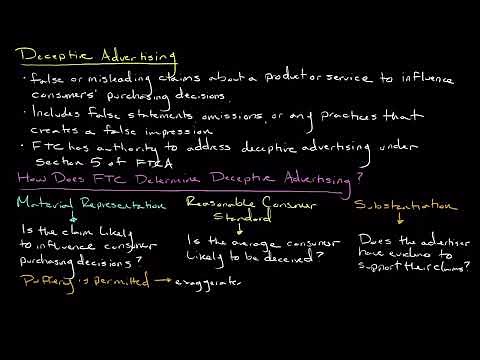 Deceptive Advertising
• false or misleading claims about a product or service to influence
consumers' purchasing decisions.
• Includes false statements, omissions, or any practices that
creates a false impression
• FTC has authority to address deceptive advertising under
section 5 of FTCA
How Does FTC Determine Deceptive Advertising?
Material Representation
Is the claim likely
to influence consumer
purchasing decisions?
Reasonable Consumer
Standard
Is the average consumer
likely to be deceived?
Substantiation
Does the advertiser
have evidence to
support their claims?
Puffery is permitted → exaggerate